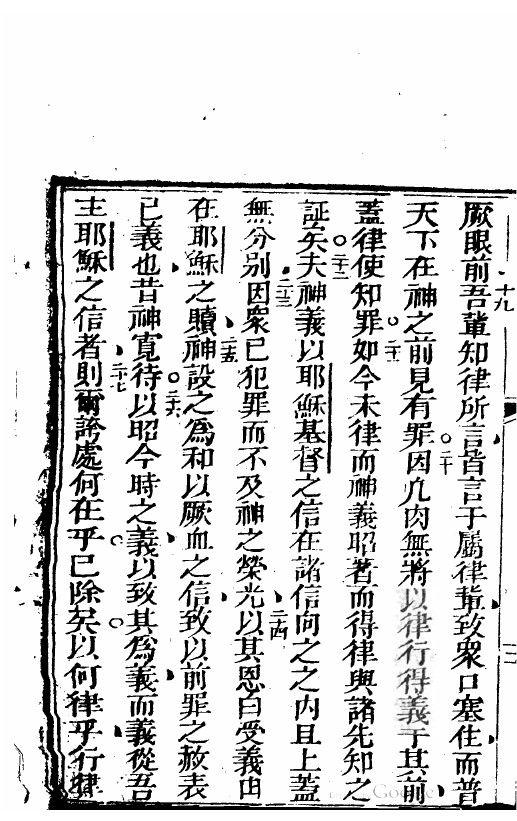 厥眼前吾輩知律所言皆言于屬律輩致衆口塞住而普
十九
天下在神之前見有罪因凢肉無將以律行得義于其前
二十
蓋律使知罪如今未律而神義昭著而得律與諸先知之
二十一
証矣夫神義以耶穌基督之信在諸信向之之內且上蓋
二十二
無分別因衆已犯罪而不及神之榮光以其恩白受義由
二十三
二十四
在耶穌之贖神設之爲和以厥血之信致以前罪之赦表
二十五
己義也昔神寬待以昭今時之義以致其爲義而義從吾
二十六
主耶穌之信者則爾誇處何在乎已除矣以何律乎行律
二十七
Google